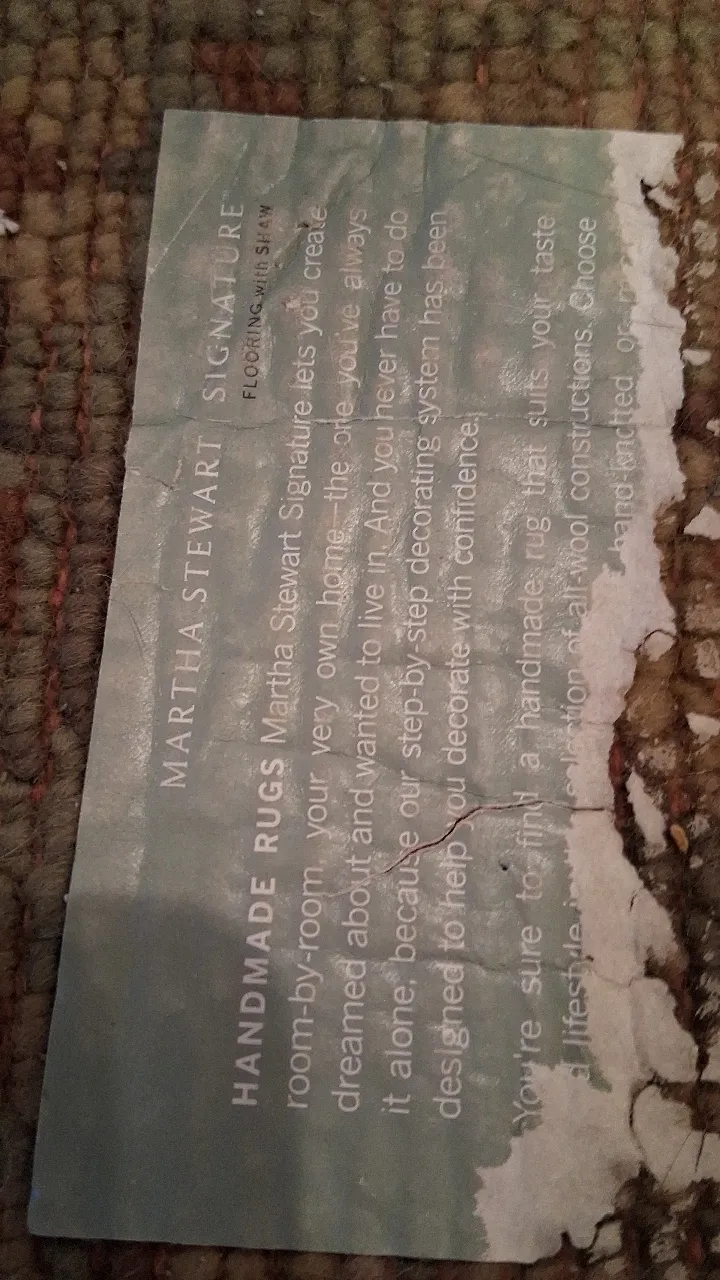 MARTHA STEWART | SIGNATURE
FLOORING with SHAW
HANDMADE RUGS Martha Stewart Signature lets you create
room-by-room, your very own home—the one you've always
dreamed about and wanted to live in. And you never have to do
it alone, because our step-by-step decorating system has been
designed to help you decorate with confidence.
You're sure to find a handmade rug that suits your taste
d lifestyle selection of all-wool constructions. Choose
hand-knotted or